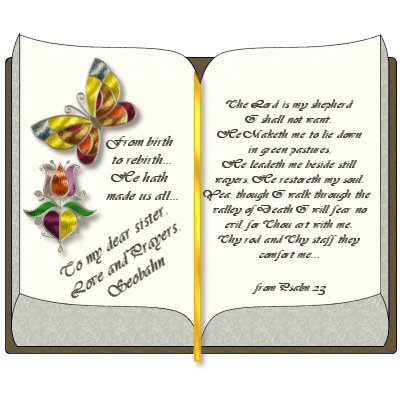 From birth
to rebirth...
He hath
made us all...
To my dear sister,
Love and Prayers,
Seobahn
The Lord is my shepherd
I shall not want.
He Maketh me to lie down
in green pastures,
He leadeth me beside still
wayers, He restoreth my soul.
Yea, though I walk through the
valley of Death I will fear no
evil, for Thou art with me.
Thy rod and Thy staff they
comfort me...
from Psalm 23